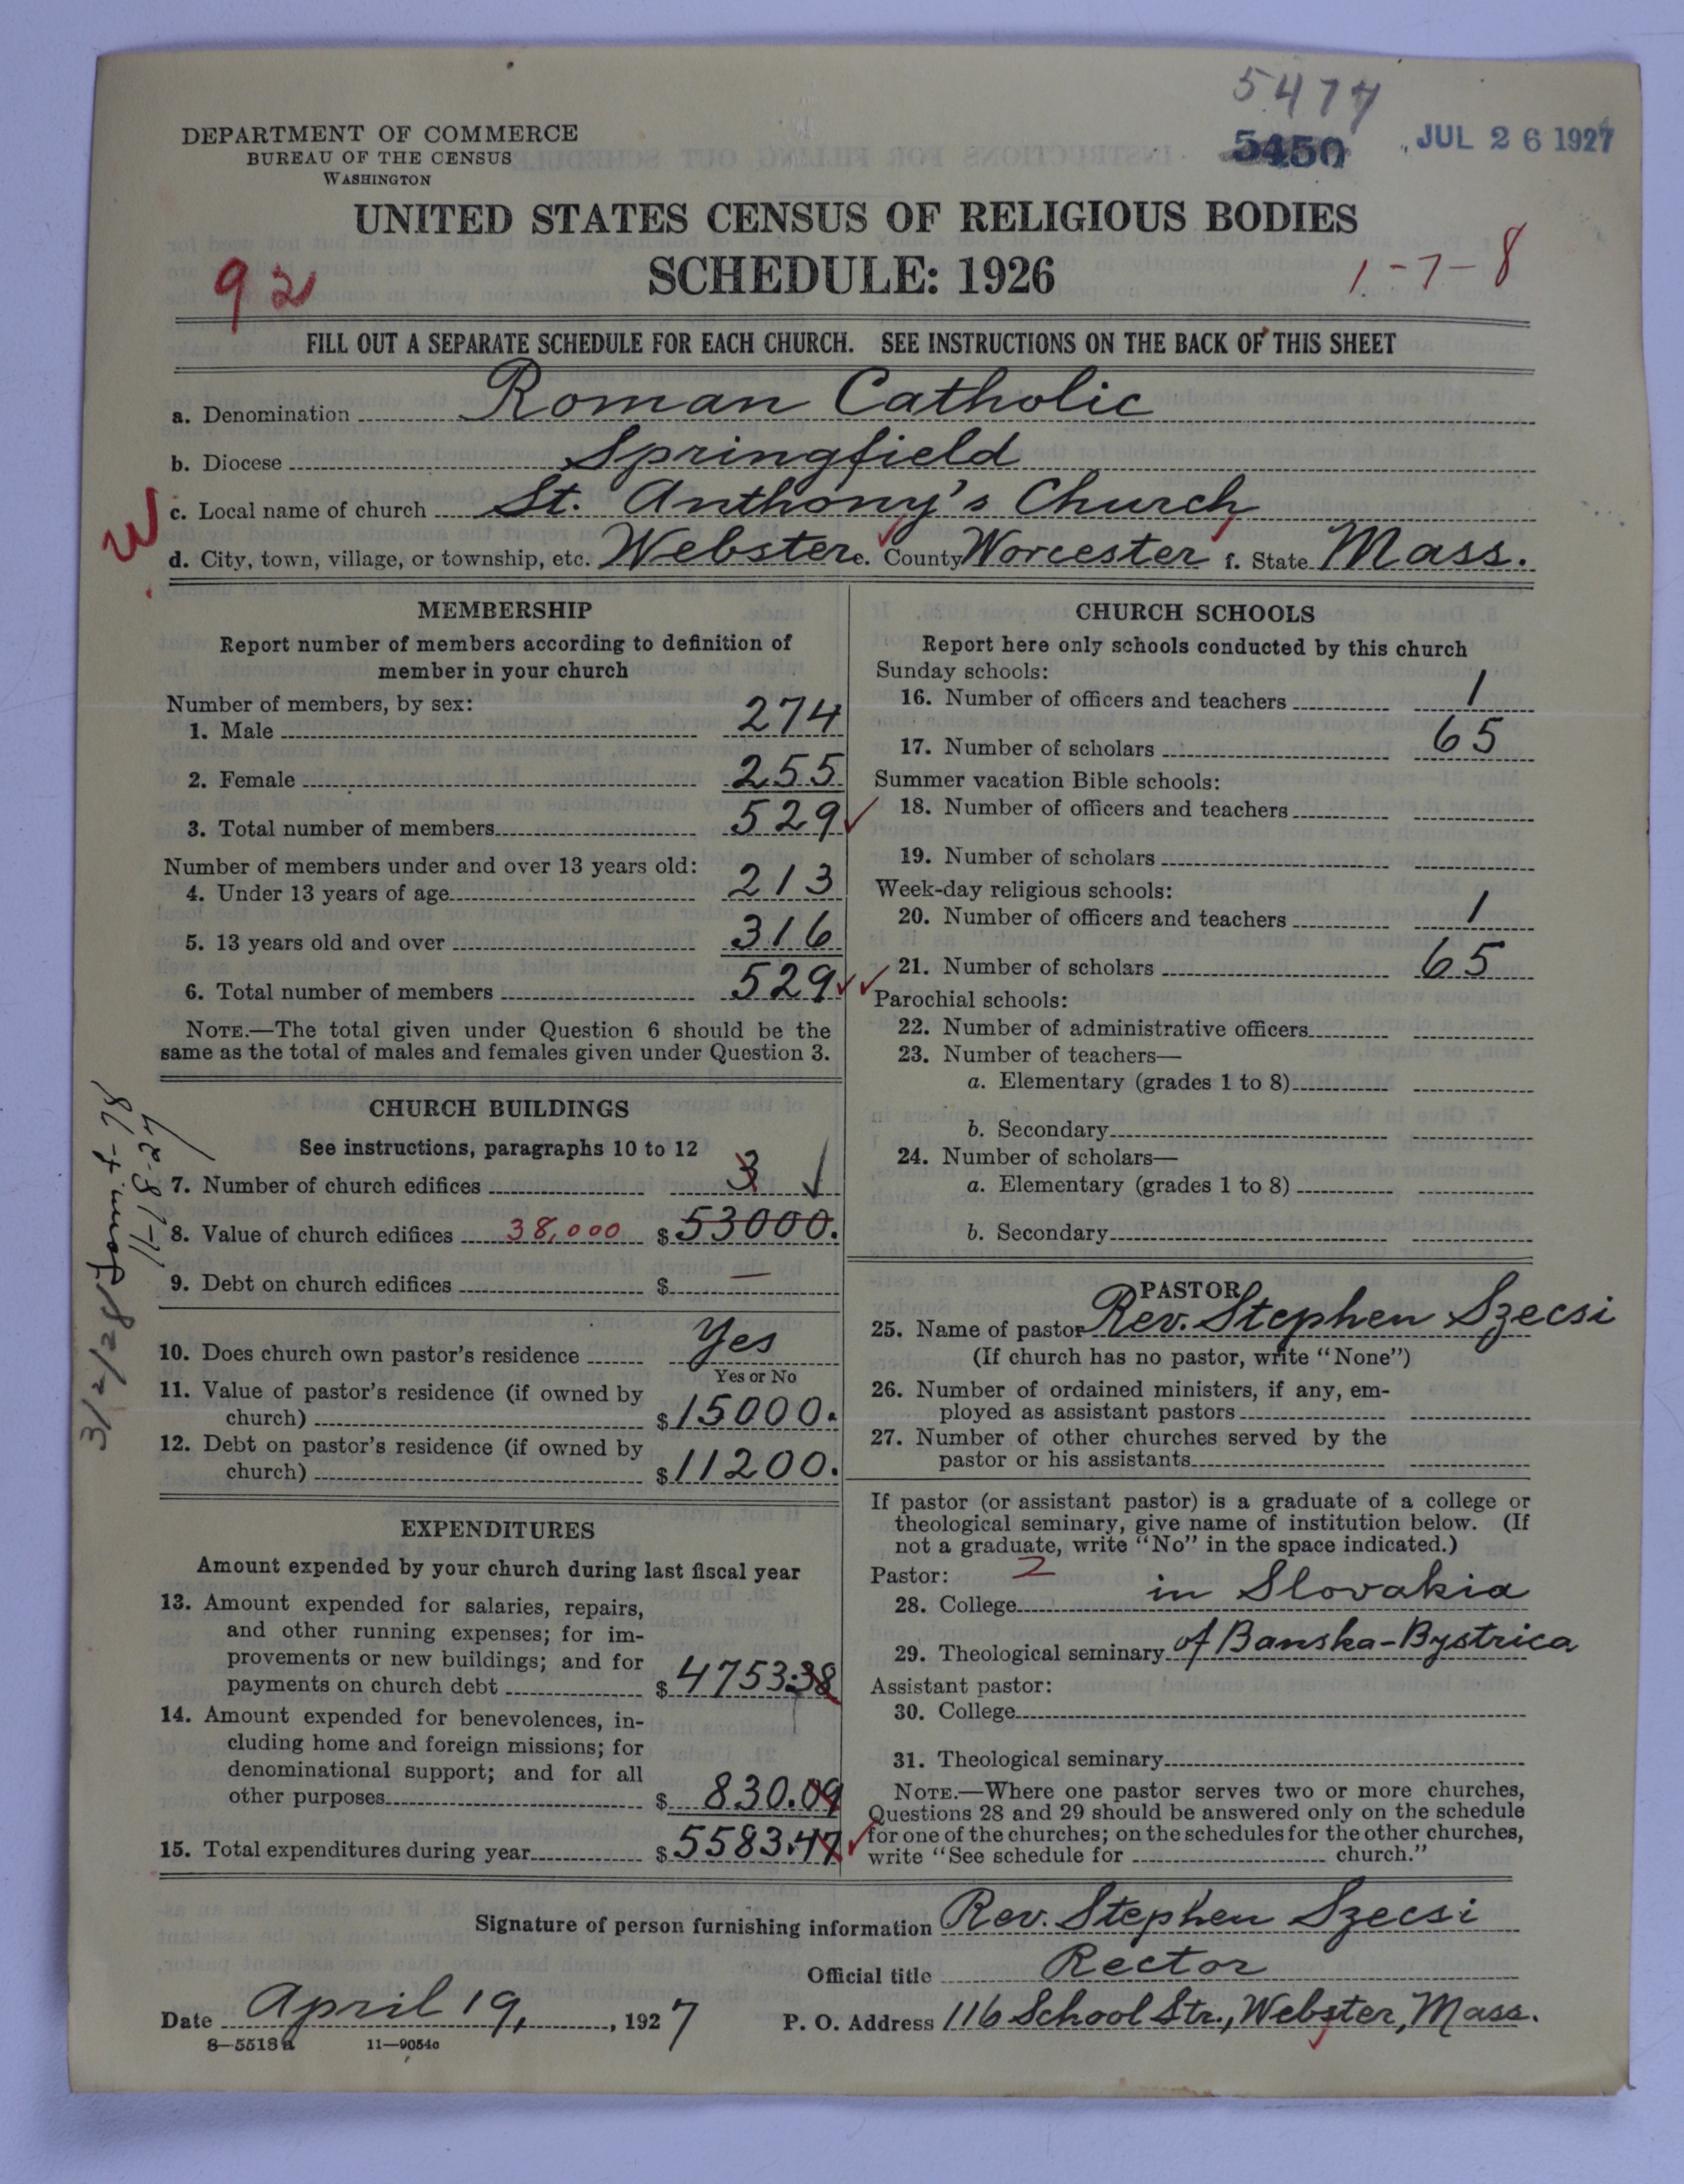 5477
5450 JUL 26 1927
DEPARTMENT OF COMMERCE
BUREAU OF THE CENSUS
WASHINGTON
UNITED STATES CENSUS OF RELIGIOUS BODIES
92 SCHEDULE: 1926 1-7-8
FILL OUT A SEPARATE SCHEDULE FOR EACH CHURCH. SEE INSTRUCTIONS ON THE BACK OF THIS SHEET
a. Denomination Roman Catholic
b. Diocese Springfield
W c. Local name of church St. Anthony's Church
d. City, town, village, or township, etc. Webster e. County Worcester f. State Mass.
MEMBERSHIP
Report number of members according to definition of
member in your church
Number of members, by sex:
1. Male 274
2. Female 255
3. Total number of members 529
Number of members under and over 13 years old:
4. Under 13 years of age 213
5. 13 years old and over 316
6. Total number of members 529
NOTE.—The total given under Question 6 should be the
same as the total of males and females given under Question 3.
CHURCH BUILDINGS
See instructions, paragraphs 10 to 12
7. Number of church edifices 3 1
8. Value of church edifices 38,000 $ 53000.
9. Debt on church edifices $ —
10. Does church own pastor's residence Yes
Yes or No
11. Value of pastor's residence (if owned by
church) $ 15000.
12. Debt on pastor's residence (if owned by
church) $ 11200.
EXPENDITURES
Amount expended by your church during last fiscal year
13. Amount expended for salaries, repairs,
and other running expenses; for im-
provements or new buildings; and for
payments on church debt $ 4753.38
14. Amount expended for benevolences, in-
cluding home and foreign missions; for
denominational support; and for all
other purposes $ 830.09
15. Total expenditures during year $ 5583.47
CHURCH SCHOOLS
Report here only schools conducted by this church
Sunday schools:
16. Number of officers and teachers 1
17. Number of scholars 65
Summer vacation Bible schools:
18. Number of officers and teachers
19. Number of scholars
Week-day religious schools:
20. Number of officers and teachers 1
21. Number of scholars 65
Parochial schools:
22. Number of administrative officers
23. Number of teachers—
a. Elementary (grades 1 to 8)
b. Secondary
24. Number of scholars—
a. Elementary (grades 1 to 8)
b. Secondary
PASTOR
25. Name of pastor Rev. Stephen Szecsi
(If church has no pastor, write "None")
26. Number of ordained ministers, if any, em-
ployed as assistant pastors
27. Number of other churches served by the
pastor or his assistants
If pastor (or assistant pastor) is a graduate of a college or
theological seminary, give name of institution below. (If
not a graduate, write "No" in the space indicated.)
Pastor: 2
28. College in Slovakia
29. Theological seminary of Banska-Bystrica
Assistant pastor:
30. College
31. Theological seminary
NOTE.—Where one pastor serves two or more churches,
Questions 28 and 29 should be answered only on the schedule
for one of the churches; on the schedules for the other churches,
write "See schedule for church."
Signature of person furnishing information Rev. Stephen Szecsi
Official title Rector
Date April 19, , 1927 P. O. Address 116 School Str., Webster, Mass.
8—5518a 11—9054c
3/2/28